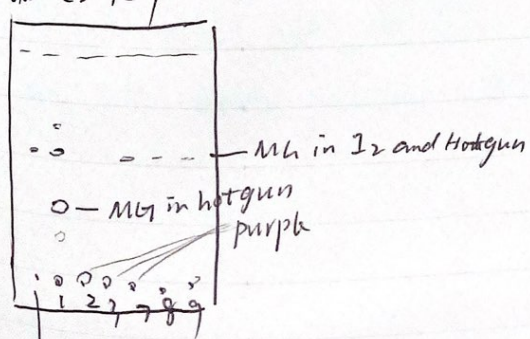 MG in I2 and Hotgun
MG in hotgun
purple
1 2 3 7 8 9